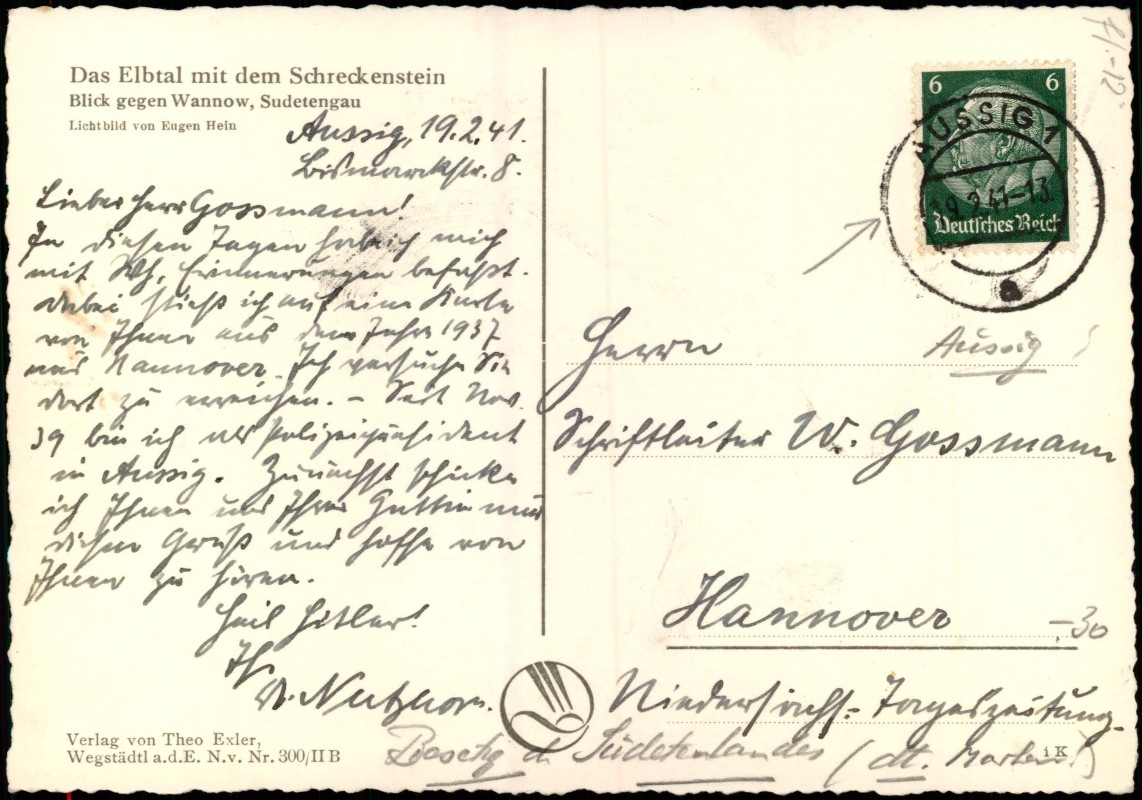 Das Elbtal mit dem Schreckenstein
Blick gegen Wannow, Sudetengau
Lichtbild von Eugen Hein
Aussig, 19.2.41.
Bismarckstr. 8.
Lieber Herr Gossmann!
In diesen Tagen habe ich mich
mit Erinnerungen befaßt.
Dabei stieß ich auf eine Karte
von Ihnen aus dem Jahre 1937
aus Hannover. Ich versuche Sie
dort zu erreichen. – Seit Nov.
39 bin ich als Polizeipräsident
in Aussig. Zunächst schicke
ich Ihnen und Ihrer Gattin nur
diesen Gruß und hoffe von
Ihnen zu hören.
Heil Hitler!
Ihr
Verlag von Theo Exler,
Wegstädtl a.d.E. N.v. Nr. 300/II B
6 6
Deutsches Reich
AUSSIG 1
19.2.41–13
a
Herrn
Aussig
Schriftleiter W. Gossmann
Hannover
-.30
Niedersächs.-Tageszeitung.
Sudetenlandes (dt.
i K